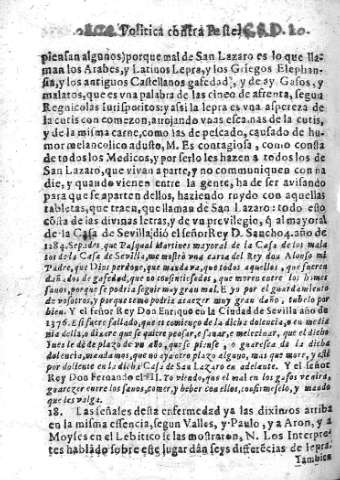 Politica contra Peste.
piensan algunos) porque mal de San Lazaro es lo que lla-
man los Arabes, y Latinos Lepra, y los Griegos Elephan-
sia, y los antiguos Castellanos gafedad, y de ay Gafos, y
malatos, que es vna palabra de las cinco de afrenta, segun
Regnicolas Iurisporitos: y assi la lepra es vna aspereza de
la cutis con comezon, arrojando vnas escamas de la cutis,
y de la misma carne, como las de pescado, causado de hu-
mor melancolico adusto, M. Es contagiosa, como consta
de todos los Medicos, y por serlo les hazen a todos los de
San Lazaro, que vivan a parte, y no communiquen con na
die, y quando vienen entre la gente, ha de ser avisando
para que se aparten dellos, haziendo roydo con aquellas
tabletas, que traen, que llaman de San Lazaro: todo esto
consta de las divinas letras, y de vn previlegio, q̃ al mayoral
de la Casa de Sevilla, diò el señor Rey D. Sancho 4. año de
1284. Sepades que Pasqual Martines mayoral de la Casa de los mala
tos de la Casa de Sevilla, me mostrò vna carta del Rey don Alonso mi
Padre, que Dios perdone, que mandava, que todos aquellos, que fueren
dañados de gafedad, que no consintiessedes, que moren entre los homes
sanos, porque se podria seguir muy gran mal. E yo por el guardamiento
de vosotros, y porque temo podria acaezer muy gran daño, tubelo por
bien. Y el señor Rey Don Enrique en la Ciudad de Sevilla año de
1376. Es si fuere fallado, que es comienço de la dicha dolencia, y en
 media della, y dixere que se quiere pensar, e sanar, e melezinar, que el dicho
Iues le dè de plazo de vn año, que se piense, o guaresca de la dicha
dolencia, mandamos, que no aya otro plazo alguno, mas que more, y estè
por doliente en la dicha Casa de San Lazaro en adelante. Y el señor
Rey Don Fernando el III. Yo viendo, que el mal en los gafos ve nira,
guarezer entre los sanos, comer, y beber con ellos, confirmeselo, y mando
que les valga.
18. Las señales desta enfermedad ya las diximos arriba
en la misma essencia, segun Valles, y Paulo, y a Aron, y a
Moyses en el Lebitico se las mostraron, N. Los Interpre-
tes hablado sobre este lugar dàn seys differẽcias de lepra.
Tambien